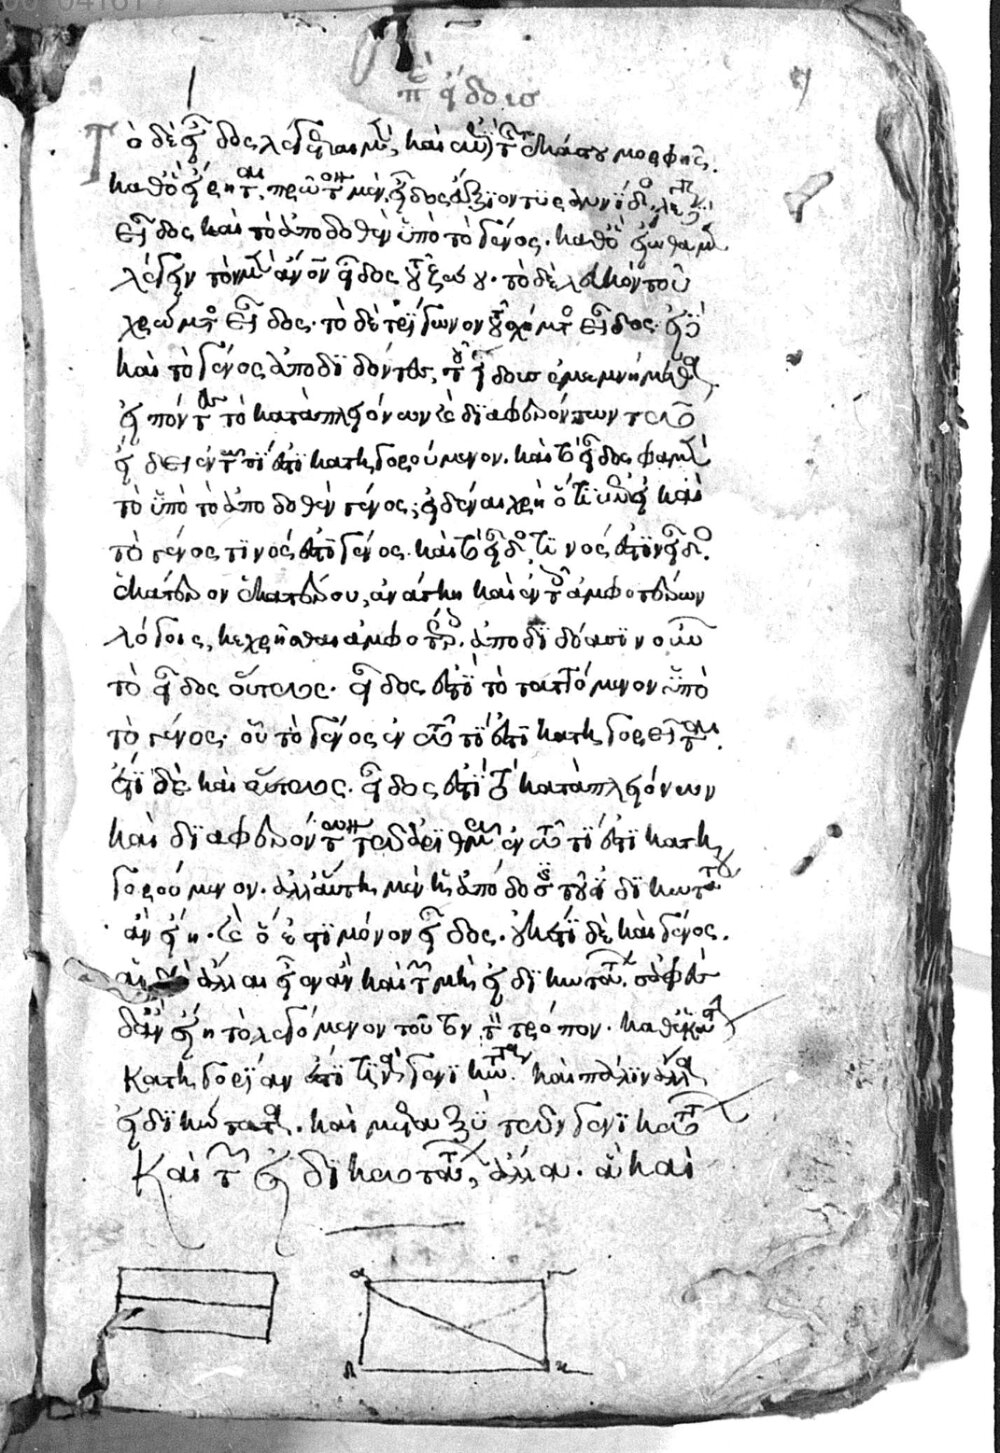 περὶ εἴδους
Τὸ δὲ εἶδος λέγεται μὲν, καὶ ἐπὶ τῆς ἑκάστου μορφῆς.
καθὸ εἴρηται, πρῶτον μὲν εἶδος ἄξιον τυραννίδος. λέγεται
εἶδος καὶ τὸ ἀποδοθὲν ὑπὸ τὸ γένος. καθὸ εἰώθαμεν
λέγειν τὸν μὲν ἄνθρωπον εἶδος τοῦ ζώου. τὸ δὲ λευκὸν τοῦ
χρώματος εἶδος. τὸ δὲ τρίγωνον τοῦ σχήματος εἶδος. εἰ δὲ
καὶ τὸ γένος ἀποδιδόντες, τοῦ εἴδους ἐμεμνήμεθα
εἰπόντες τὸ κατὰ πλειόνων καὶ διαφερόντων τῷ
εἴδει ἐν τῷ τί ἐστι κατηγορούμενον. καὶ τὸ εἶδος φαμὲν
τὸ ὑπὸ τὸ ἀποδοθὲν γένος, εἰδέναι χρὴ ὅτι ἐπεὶ καὶ
τὸ γένος τινός ἐστι γένος. καὶ τὸ εἶδος τινός ἐστιν εἶδος.
ἑκάτερον ἑκατέρου, ἀνάγκη καὶ ἐν τοῖς ἀμφοτέρων
λόγοις, κεχρῆσθαι ἀμφοτέροις. ἀποδιδόασιν οὖν
τὸ εἶδος οὕτως. εἶδος ἐστὶ τὸ ταττόμενον ὑπὸ
τὸ γένος. οὗ τὸ γένος ἐν τῷ τί ἐστι κατηγορεῖται.
ἔτι δὲ καὶ οὕτως. εἶδος ἐστὶ τὸ κατὰ πλειόνων
καὶ διαφερόντων τῷ ἀριθμῷ ἐν τῷ τί ἐστι κατη
γορούμενον. ἀλλ' αὕτη μὲν ἡ ἀπόδοσις τοῦ εἰδικωτάτου
ἂν εἴη. καὶ ὅ ἐστι μόνον εἶδος. οὐκέτι δὲ καὶ γένος.
αἱ δὲ ἄλλαι εἶεν ἂν καὶ τῶν μὴ εἰδικωτάτων. σαφὲς
δ' ἂν εἴη τὸ λεγόμενον τοῦτον τὸν τρόπον. καθ' ἑκάστην
κατηγορίαν ἐστί τινα γενικώτατα. καὶ πάλιν ἄλλα
εἰδικώτατα. καὶ μεταξὺ τῶν γενικωτάτων
Καὶ τῶν εἰδικωτάτων, ἄλλα. ἃ καὶ